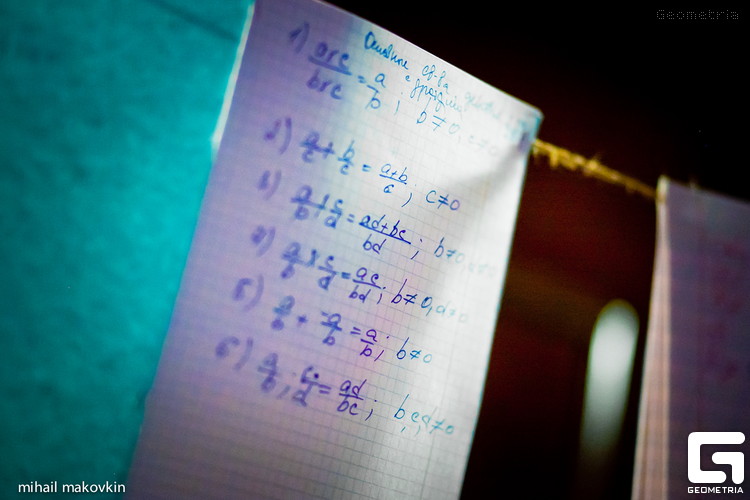 Geometria
Основные св-ва действий
с дробями
1) a×c/b×c = a/b ; b≠0, c≠0
2) a/c + b/c = a+b/c ; c≠0
3) a/b + c/d = ad+bc/bd ; b≠0,
4) a/b × c/d = ac/bd ; b≠0, d≠0
5) a/b + -a/b = a/b ; b≠0
6) a/b : c/d = ad/bc ; b,c,d≠0
mihail makovkin
GEOMETRIA